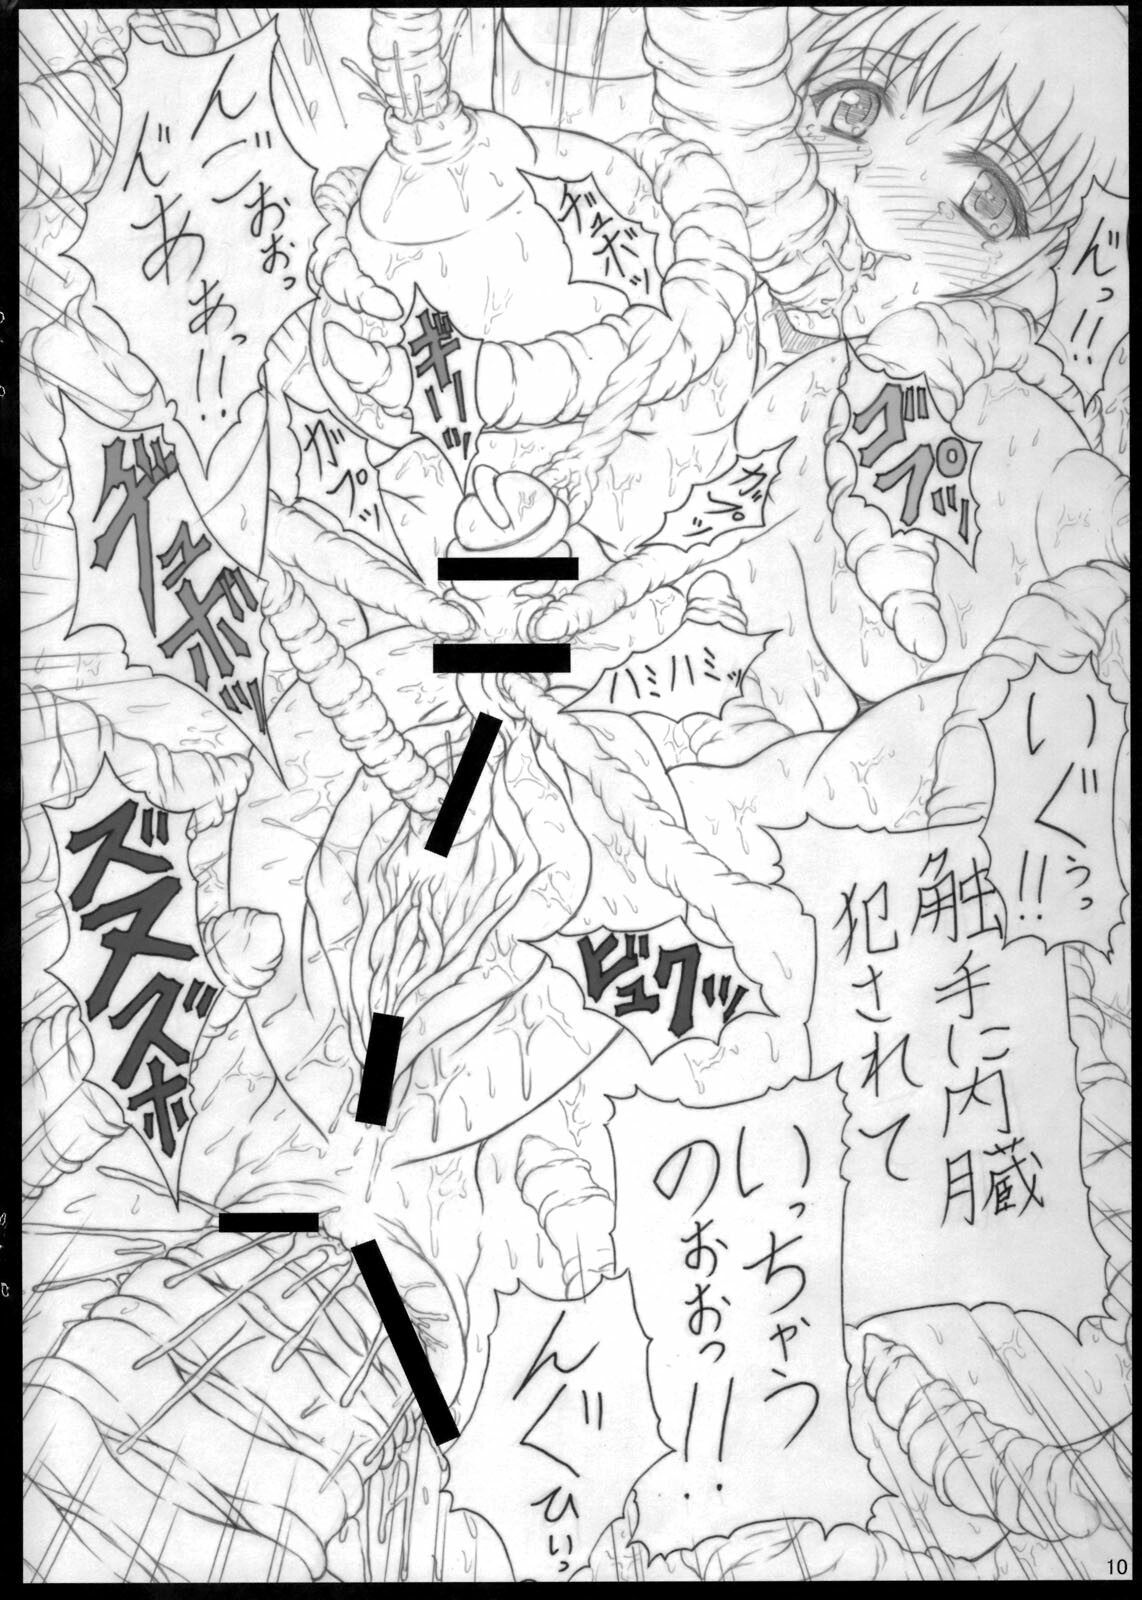 ん゛っ!!
ヂュボッ
んごおおっ
ん゛あぁっ!!
ギリッ
ゴプッ
ガプッ
ガプッ
ヂュボッ
ハミハミッ
いぐぅっ!!
触手に内臓
犯されて
ズヌズボ
ビュクッ
いっちゃう
のぉおっ!!
んぐひいっ
10